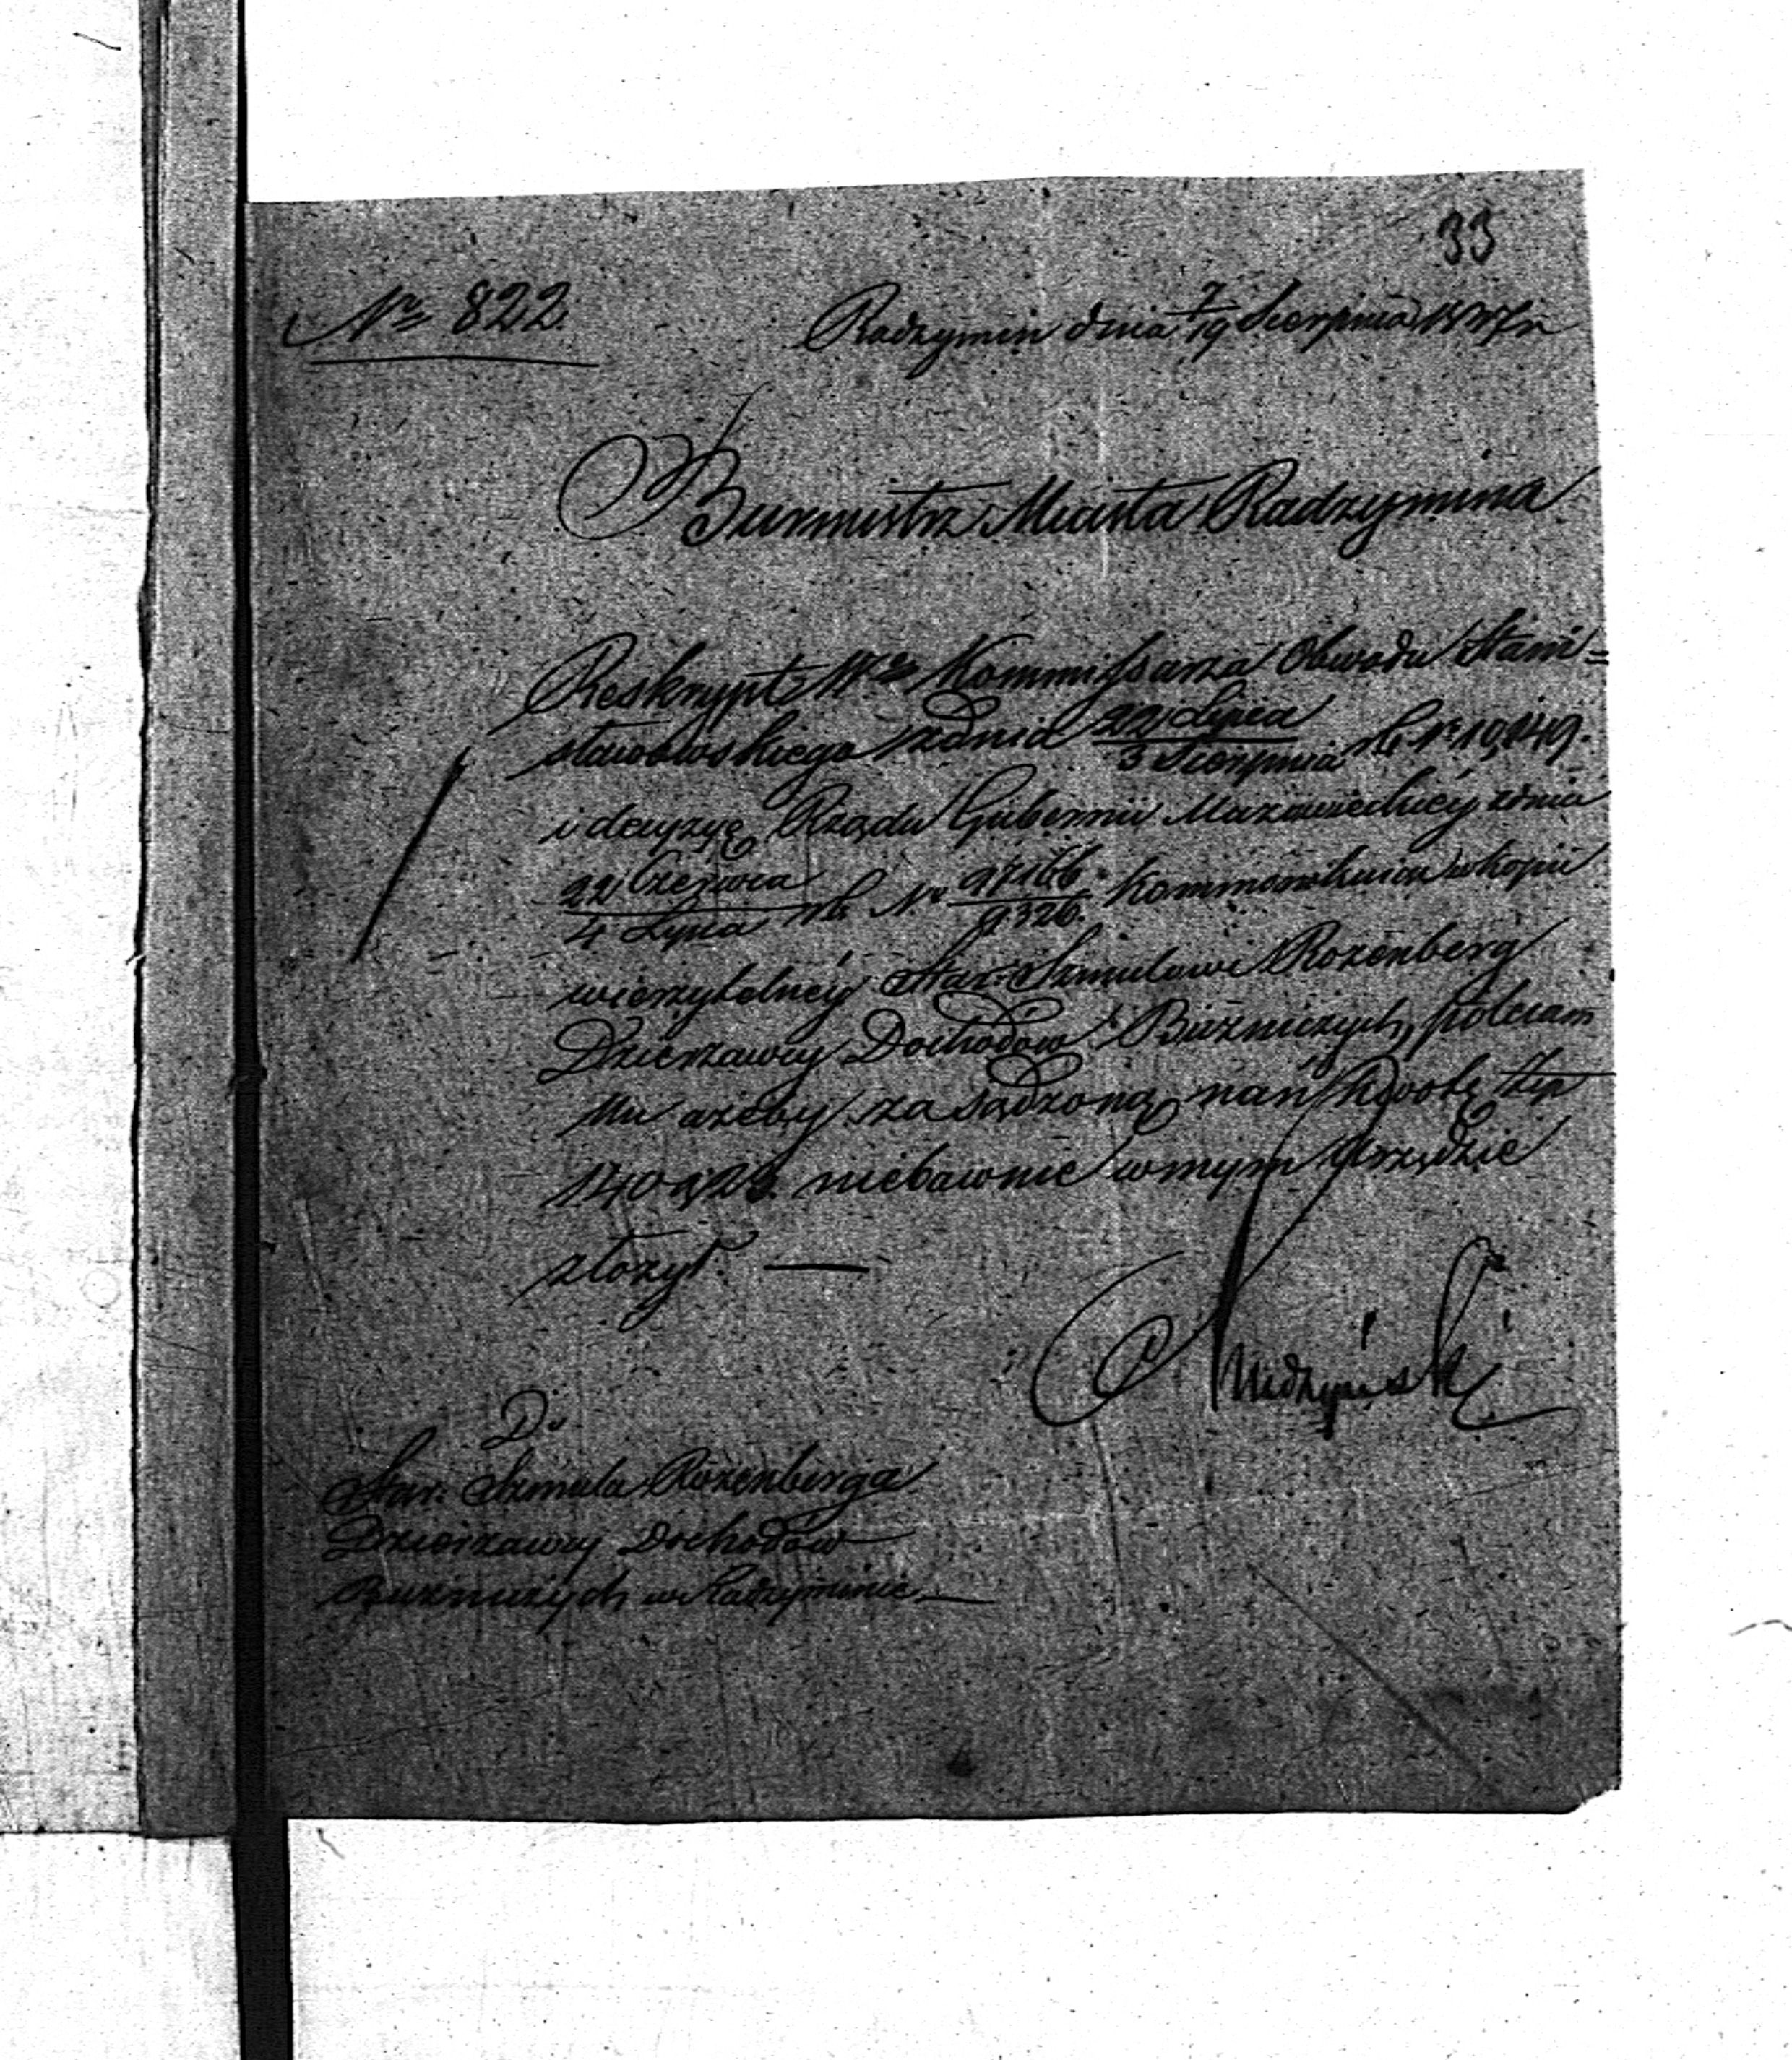 33
No 822.
Radzymin dnia 7/19 Sierpnia 1837 r
Burmistrz Miasta Radzymina
Reskrypt Wgo Kommissarza Obwodu Stani=
sławowskiego z dnia 22 Lipca / 3 Sierpnia r. b. No
i decyzyę Rządu Gubernii Mazowieckiéj z dnia
22 Czerwca / 4 Lipca r. b. No 97166 / 9326. kommunikuia w kopii
wierzytelnéj Star: Szmulowi Rozenberg
Dzierzawcy Dochodów Bużniczych, polecam
mu ażeby zasądzoną nań kwotę złp
140 g niebawnie w mym Urzędzie
złożył. —
Do
Star. Szmula Rozenberga
Dzierzawcy Dochodów
Bużniczych w Radzyminie —